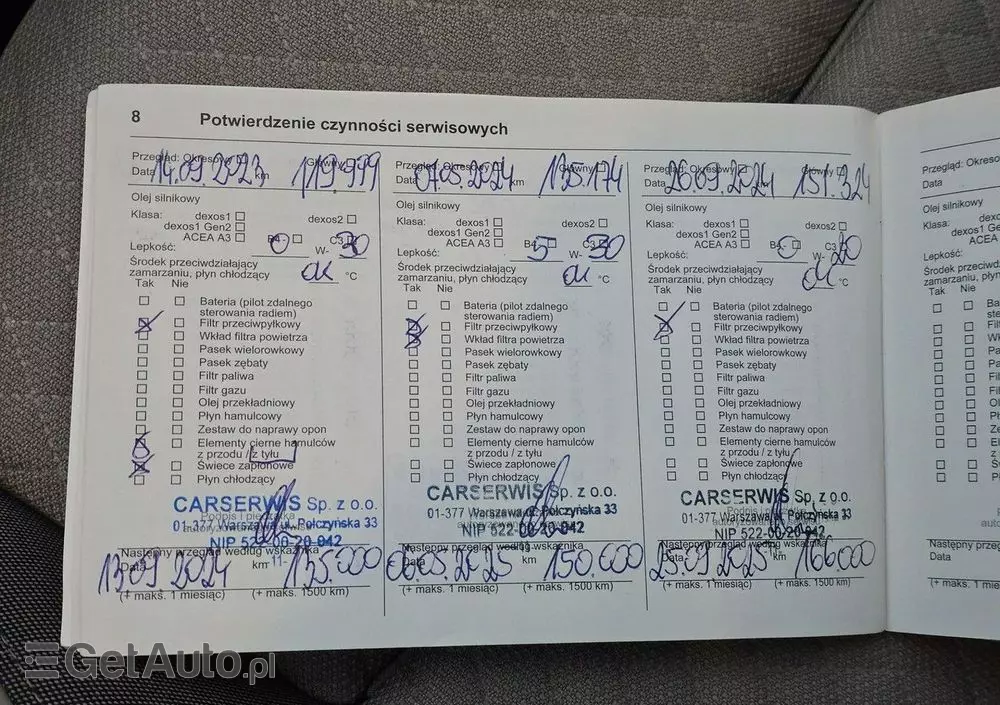 8 Potwierdzenie czynności serwisowych
Przegląd: Okresowy Główny
Data 14.09.2023 km 119.999
Olej silnikowy
Klasa: dexos1 dexos2
dexos1 Gen2
ACEA A3 B4 C3
Lepkość: 0 W- 30
Środek przeciwdziałający
zamarzaniu, płyn chłodzący ok °C
Tak Nie
Bateria (pilot zdalnego
sterowania radiem)
Filtr przeciwpyłkowy
Wkład filtra powietrza
Pasek wielorowkowy
Pasek zębaty
Filtr paliwa
Filtr gazu
Olej przekładniowy
Płyn hamulcowy
Zestaw do naprawy opon
Elementy cierne hamulców
z przodu / z tyłu
Świece zapłonowe
Płyn chłodzący
CARSERWIS Sp. z o.o.
01-377 Warszawa ul. Połczyńska 33
NIP 522-00-20-042
Następny przegląd według wskaźnika
Data 13.09.2024 km 135.000
(+ maks. 1 miesiąc) (+ maks. 1500 km)
Przegląd: Okresowy Główny
Data 07.05.2024 km 135.174
Olej silnikowy
Klasa: dexos1 dexos2
dexos1 Gen2
ACEA A3 B4 C3
Lepkość: 5 W- 30
Środek przeciwdziałający
zamarzaniu, płyn chłodzący ok °C
Tak Nie
Bateria (pilot zdalnego
sterowania radiem)
Filtr przeciwpyłkowy
Wkład filtra powietrza
Pasek wielorowkowy
Pasek zębaty
Filtr paliwa
Filtr gazu
Olej przekładniowy
Płyn hamulcowy
Zestaw do naprawy opon
Elementy cierne hamulców
z przodu / z tyłu
Świece zapłonowe
Płyn chłodzący
CARSERWIS Sp. z o.o.
01-377 Warszawa ul. Połczyńska 33
NIP 522-00-20-042
Następny przegląd według wskaźnika
Data 06.05.2025 km 150.000
(+ maks. 1 miesiąc) (+ maks. 1500 km)
Przegląd: Okresowy Główny
Data 26.09.2024 km 151.324
Olej silnikowy
Klasa: dexos1 dexos2
dexos1 Gen2
ACEA A3 B4 C3
Lepkość: 0 W- 20
Środek przeciwdziałający
zamarzaniu, płyn chłodzący ok °C
Tak Nie
Bateria (pilot zdalnego
sterowania radiem)
Filtr przeciwpyłkowy
Wkład filtra powietrza
Pasek wielorowkowy
Pasek zębaty
Filtr paliwa
Filtr gazu
Olej przekładniowy
Płyn hamulcowy
Zestaw do naprawy opon
Elementy cierne hamulców
z przodu / z tyłu
Świece zapłonowe
Płyn chłodzący
CARSERWIS Sp. z o.o.
01-377 Warszawa ul. Połczyńska 33
NIP 522-00-20-042
Następny przegląd według wskaźnika
Data 25.09.2025 km 166.000
(+ maks. 1 miesiąc) (+ maks. 1500 km)
Przegląd: Okreso
Data
Olej silnikowy
Klasa:
Lepkość:
Środek przeciwd
zamarzaniu, płyn
Tak Nie
Następny przeg
Data
(+ maks. 1
GetAuto.pl